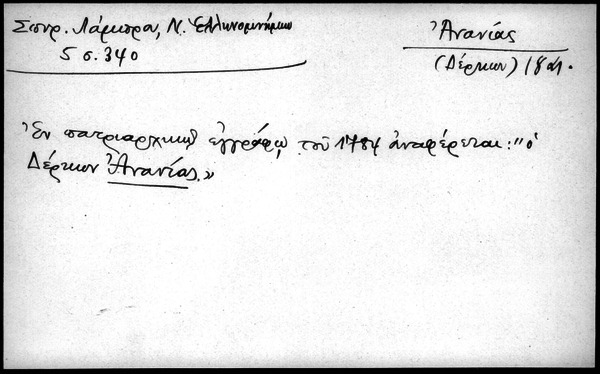 Σπυρ. Λάμπρου, Ν. Ἑλληνομνήμων
5 σ. 340
Ἀνανίας
(Δέρκων)
Ἐν πατριαρχικῷ ἐγγράφῳ τοῦ 1784 ἀναφέρεται: "ὁ
Δέρκων Ἀνανίας."